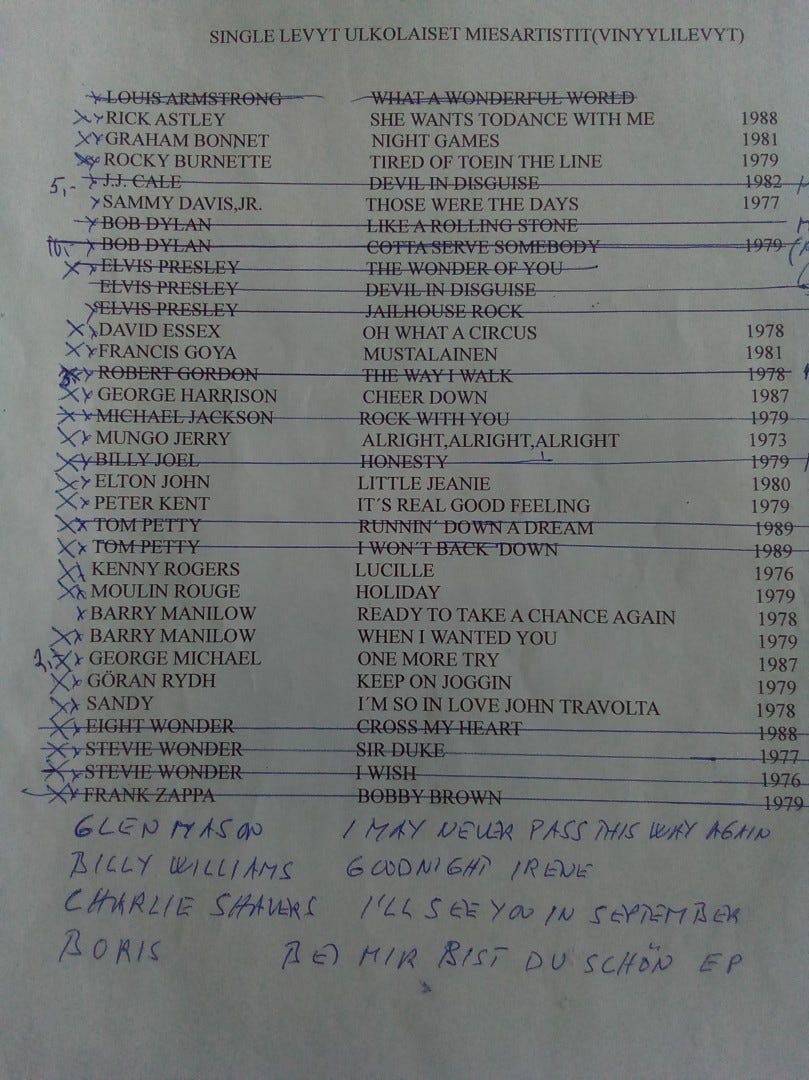 SINGLE LEVYT ULKOLAISET MIESARTISTIT(VINYYLILEVYT)
LOUIS ARMSTRONG WHAT A WONDERFUL WORLD
RICK ASTLEY SHE WANTS TODANCE WITH ME 1988
GRAHAM BONNET NIGHT GAMES 1981
ROCKY BURNETTE TIRED OF TOEIN THE LINE 1979
5,- J.J. CALE DEVIL IN DISGUISE 1982
SAMMY DAVIS,JR. THOSE WERE THE DAYS 1977
BOB DYLAN LIKE A ROLLING STONE
10,- BOB DYLAN COTTA SERVE SOMEBODY 1979
ELVIS PRESLEY THE WONDER OF YOU
ELVIS PRESLEY DEVIL IN DISGUISE
ELVIS PRESLEY JAILHOUSE ROCK
DAVID ESSEX OH WHAT A CIRCUS 1978
FRANCIS GOYA MUSTALAINEN 1981
ROBERT GORDON THE WAY I WALK 1978
GEORGE HARRISON CHEER DOWN 1987
MICHAEL JACKSON ROCK WITH YOU 1979
MUNGO JERRY ALRIGHT,ALRIGHT,ALRIGHT 1973
BILLY JOEL HONESTY 1979
ELTON JOHN LITTLE JEANIE 1980
PETER KENT IT´S REAL GOOD FEELING 1979
TOM PETTY RUNNIN´ DOWN A DREAM 1989
TOM PETTY I WON´T BACK ´DOWN 1989
KENNY ROGERS LUCILLE 1976
MOULIN ROUGE HOLIDAY 1979
BARRY MANILOW READY TO TAKE A CHANCE AGAIN 1978
BARRY MANILOW WHEN I WANTED YOU 1979
GEORGE MICHAEL ONE MORE TRY 1987
GÖRAN RYDH KEEP ON JOGGIN 1979
SANDY I´M SO IN LOVE JOHN TRAVOLTA 1978
EIGHT WONDER CROSS MY HEART 1988
STEVIE WONDER SIR DUKE 1977
STEVIE WONDER I WISH 1976
FRANK ZAPPA BOBBY BROWN 1979
GLEN MASON I MAY NEVER PASS THIS WAY AGAIN
BILLY WILLIAMS GOODNIGHT IRENE
CHARLIE SHAVERS I'LL SEE YOU IN SEPTEMBER
BORIS BEI MIR BIST DU SCHÖN EP